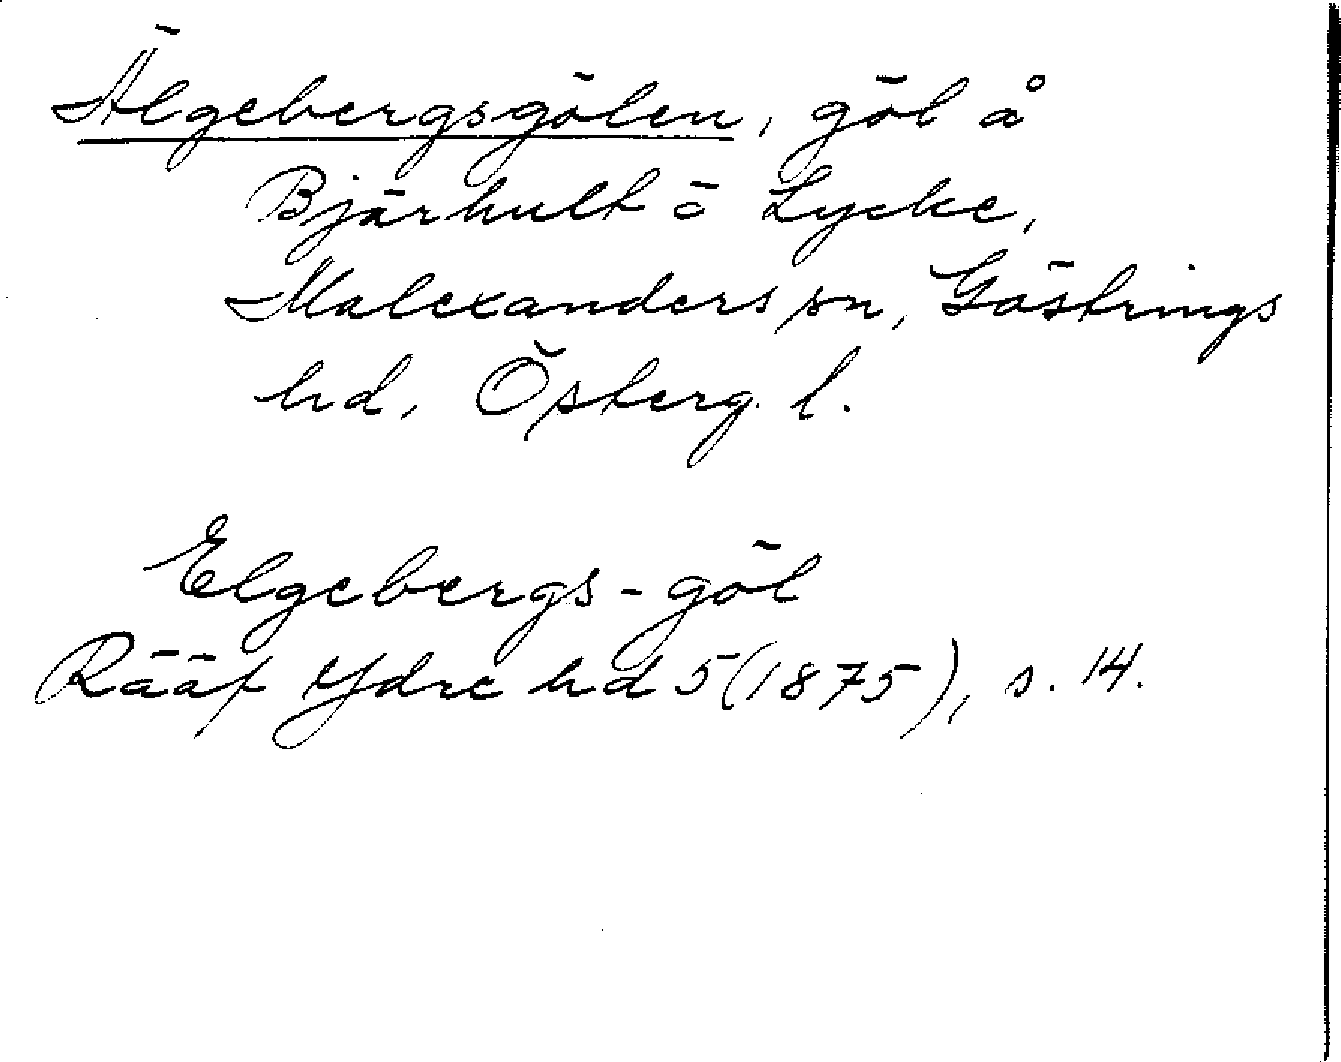 Älgebergsgölen, göl å
Bjärhult o Lycke,
Malexanders sn, Göstrings
hd, Österg. l.
Elgebergs-göl
Rääf Ydre hd 5 (1875), s. 14.